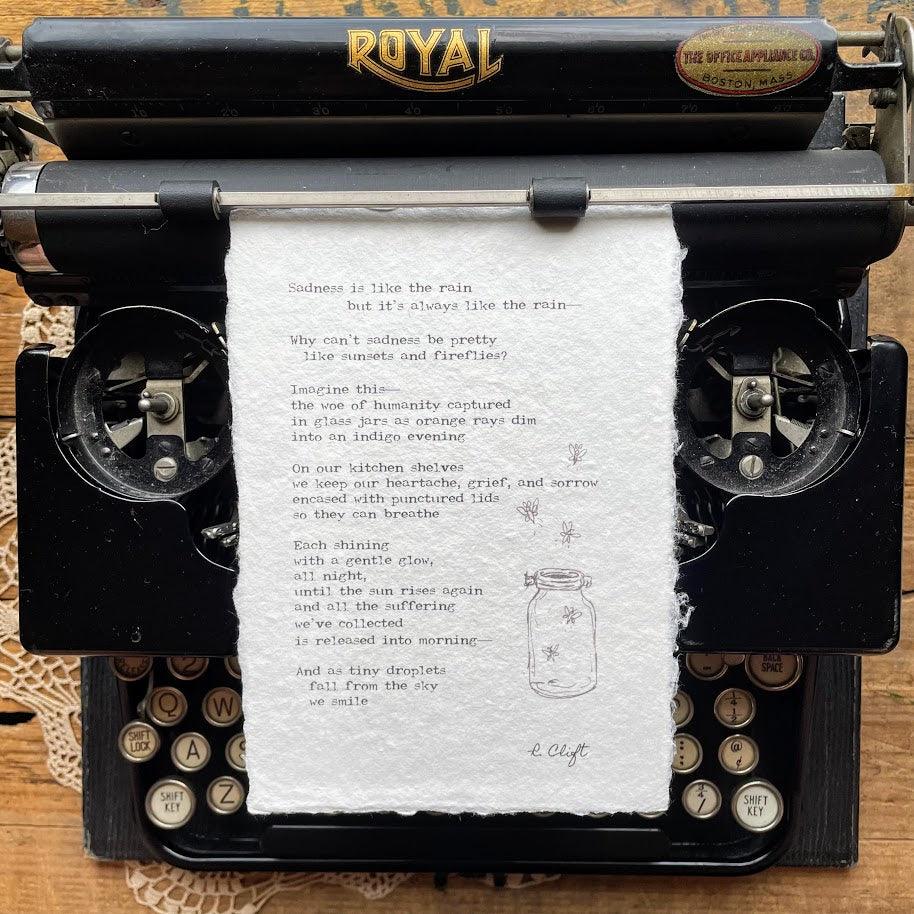 ROYAL
THE OFFICE APPLIANCE CO.
BOSTON, MASS
10 20 30 40 50 60 70
Sadness is like the rain
but it's always like the rain—
Why can't sadness be pretty
like sunsets and fireflies?
Imagine this—
the woe of humanity captured
in glass jars as orange rays dim
into an indigo evening
On our kitchen shelves
we keep our heartache, grief, and sorrow
encased with punctured lids
so they can breathe
Each shining
with a gentle glow,
all night,
until the sun rises again
and all the suffering
we've collected
is released into morning—
And as tiny droplets
fall from the sky
we smile
R. Clift
2
BACK SPACE
Q W 1/4 1/2
SHIFT LOCK A : @ ¢
SHIFT KEY Z 3/4 / SHIFT KEY